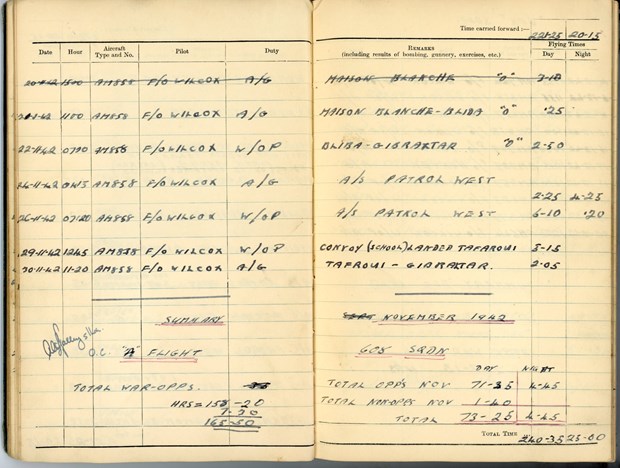 Time carried forward :— 221-25 20-15
Date Hour Aircraft Type and No. Pilot Duty
REMARKS (including results of bombing, gunnery, exercises, etc.)
Flying Times
Day Night
AM858 F/O WILCOX A/G MAISON BLANCHE "O" 3-10
1100 AM858 F/O WILCOX A/G MAISON BLANCHE-BLIDA "O" ·25
22-11-42 AM858 F/O WILCOX W/OP BLIDA-GIBRALTAR "O" 2-50
24-11-42 0415 AM858 F/O WILCOX A/G A/S PATROL WEST
2-25 4-25
26-11-42 0720 AM858 F/O WILCOX W/OP A/S PATROL WEST 6-10 ·20
29-11-42 1245 AM858 F/O WILCOX W/OP CONVOY (SCHOOL) LANDED TAFAROUI 3-15
30-11-42 11-20 AM858 F/O WILCOX A/G TAFROUI - GIBRALTAR. 2-05
SUMMARY
NOVEMBER 1942
O.C. "A" FLIGHT
608 SQDN
DAY NIGHT
TOTAL WAR-OPPS.
TOTAL OPPS NOV 71-35 4-45
HRS = 158-20
TOTAL NON-OPPS NOV 1-40
7-30
TOTAL 73-25 4-45
165-50
TOTAL TIME 240-35 25-00